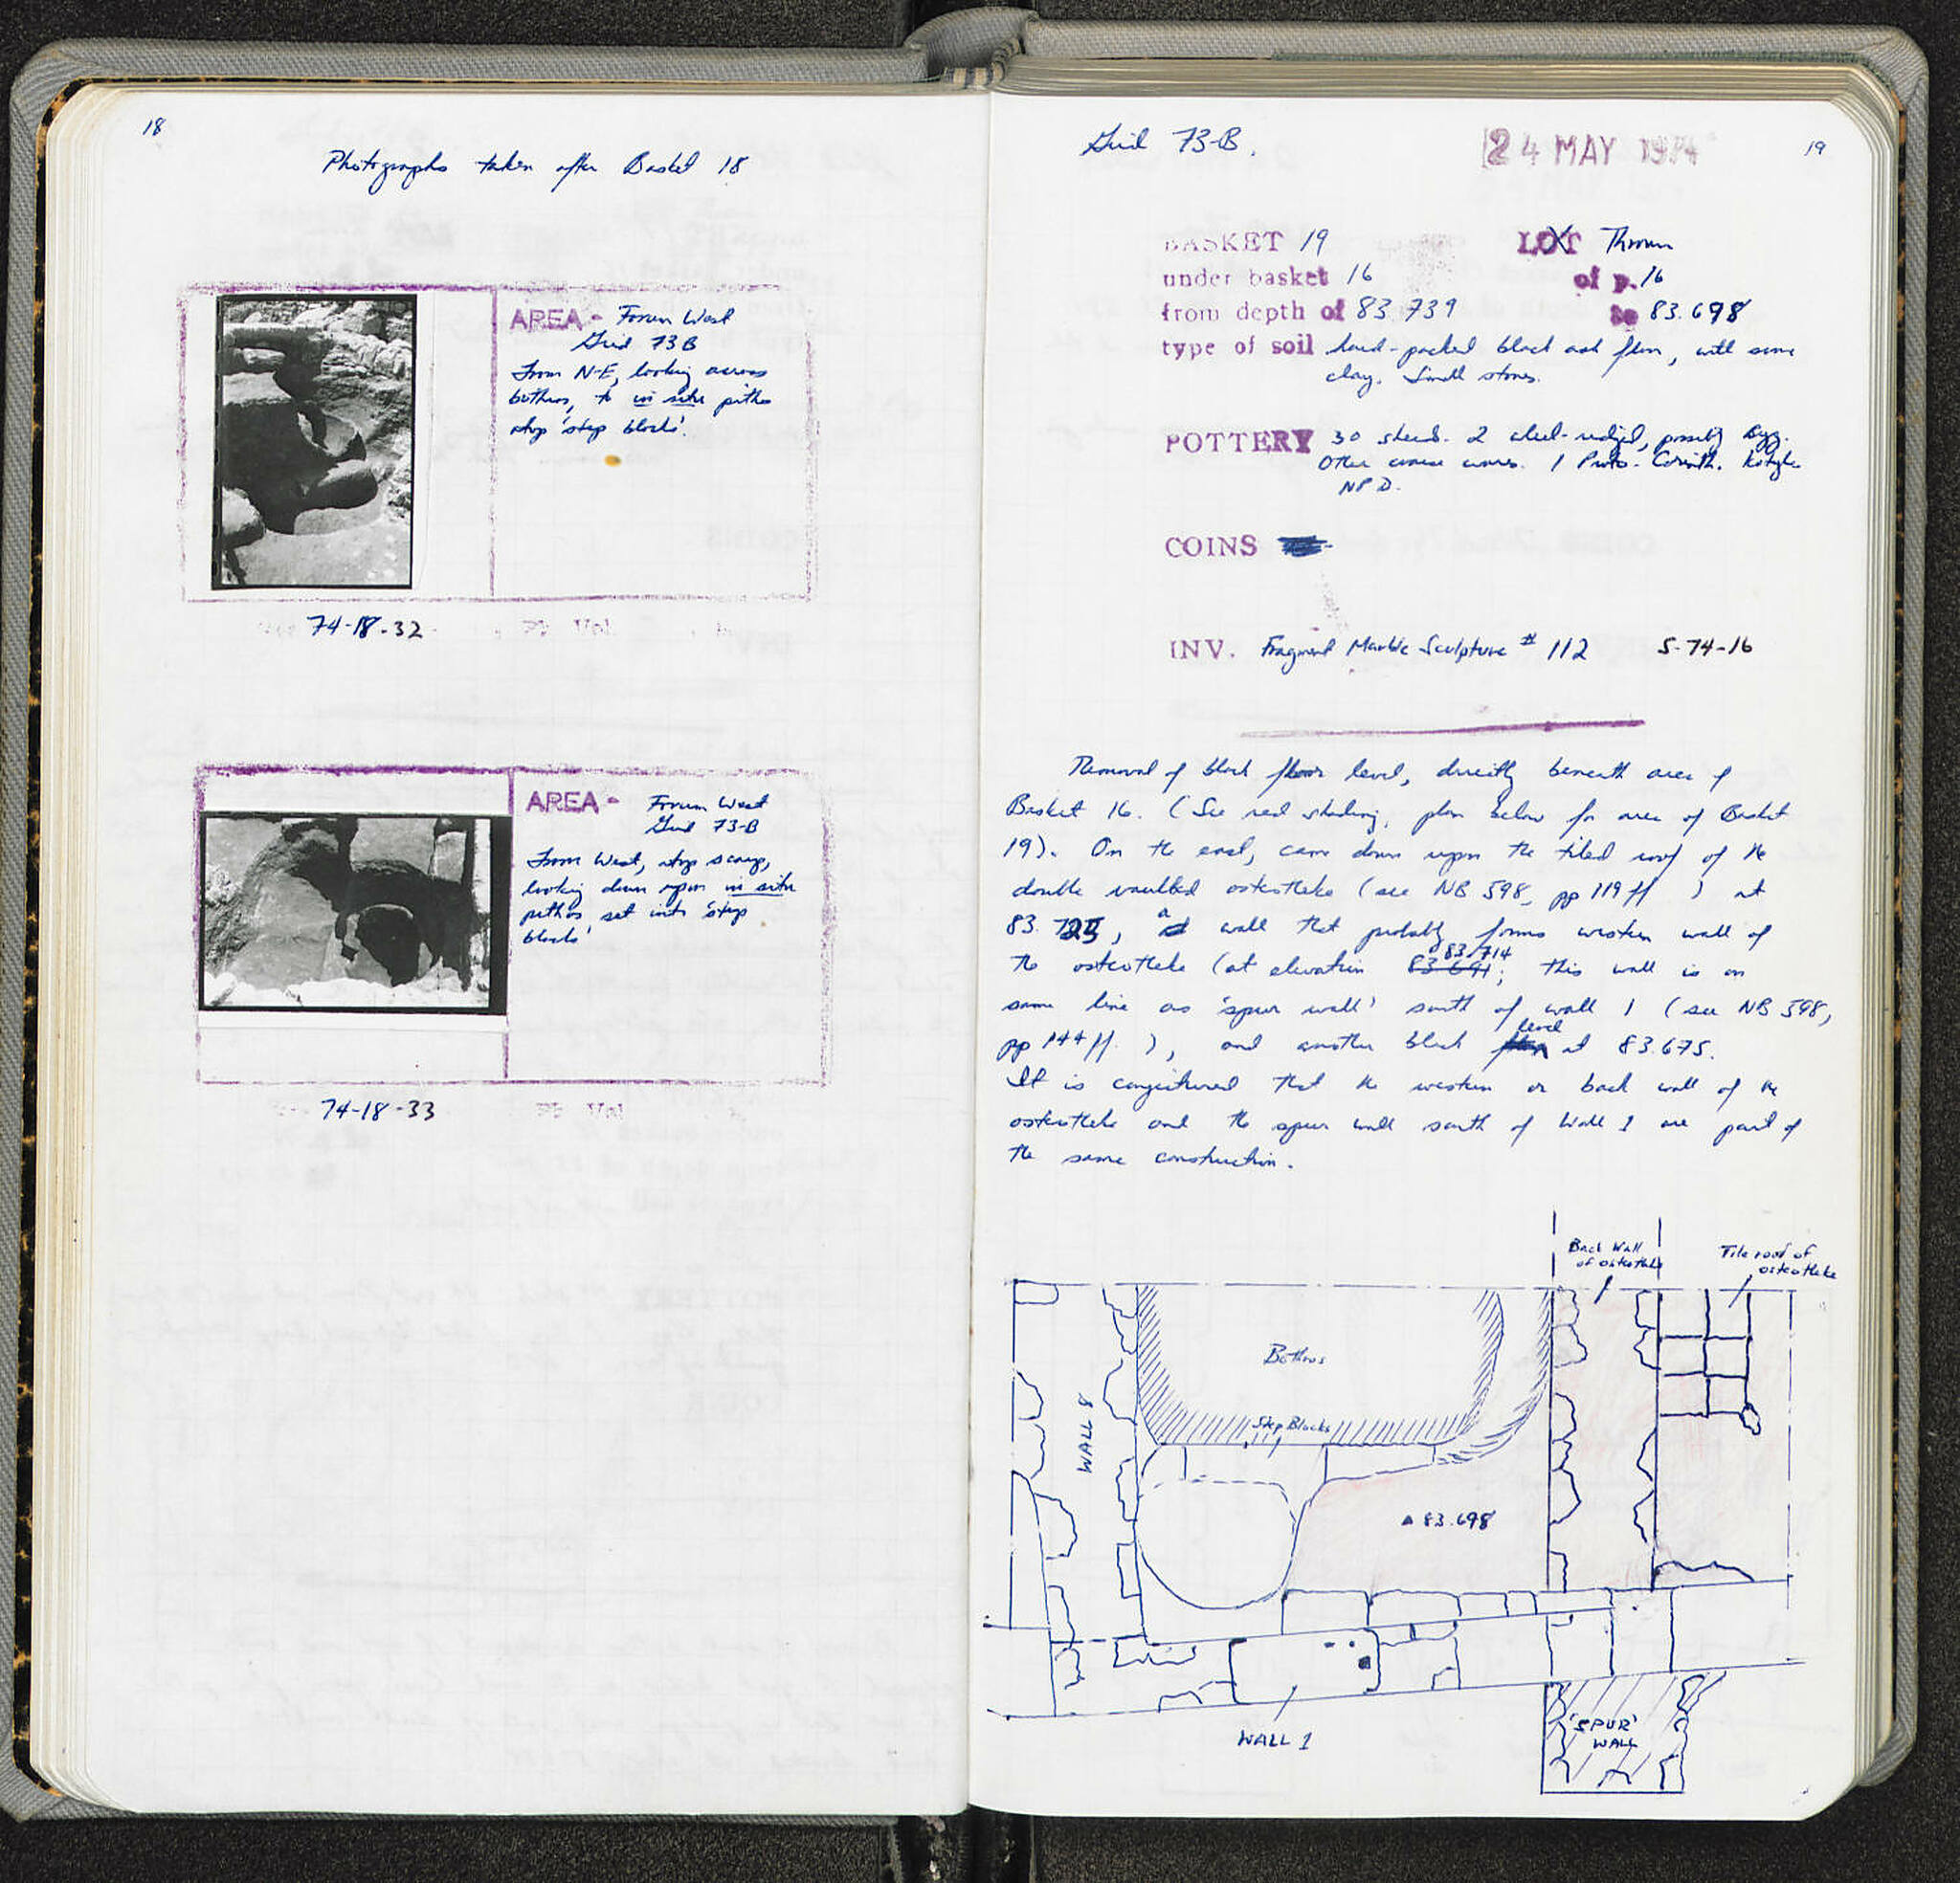 18
Photographs taken after Basket 18
AREA - Forum West
Grid 73B
From N-E, looking across
bothros, to in situ pithos
atop 'step blocks'.
74-18-32
AREA - Forum West
Grid 73-B
From West, atop scarp,
looking down upon in situ
pithos set into 'step
blocks'
74-18-33
Grid 73-B.
24 MAY 1974
19
BASKET 19 LOT Thrown
under basket 16 of p. 16
from depth of 83.739 to 83.698
type of soil hard-packed black ash floor, with some
clay. Small stones.
POTTERY 30 sherds. 2 wheel-ridged, possibly Byz.
Other coarse wares. 1 Proto-Corinth. Kotyle
NPD.
COINS -
INV. Fragment Marble Sculpture # 112 S-74-16
Removal of black floor level, directly beneath area of
Basket 16. (See red shading, plan below for area of Basket
19). On the east, came down upon the tiled roof of the
double vaulted osteotheke (see NB 598, pp 119 ff ) at
83.725, a wall that probably forms western wall of
the osteotheke (at elevation 83.691 83.714; this wall is on
same line as 'spur wall' south of wall 1 (see NB 598,
pp 144 ff. ), and another black level at 83.675.
It is conjectured that the western or back wall of the
osteotheke and the spur wall south of Wall 1 are part of
the same construction.
Back Wall
of osteotheke
Tile roof of
osteotheke
Bothros
Step Blocks
WALL 8
83.698
WALL 1
'SPUR'
WALL